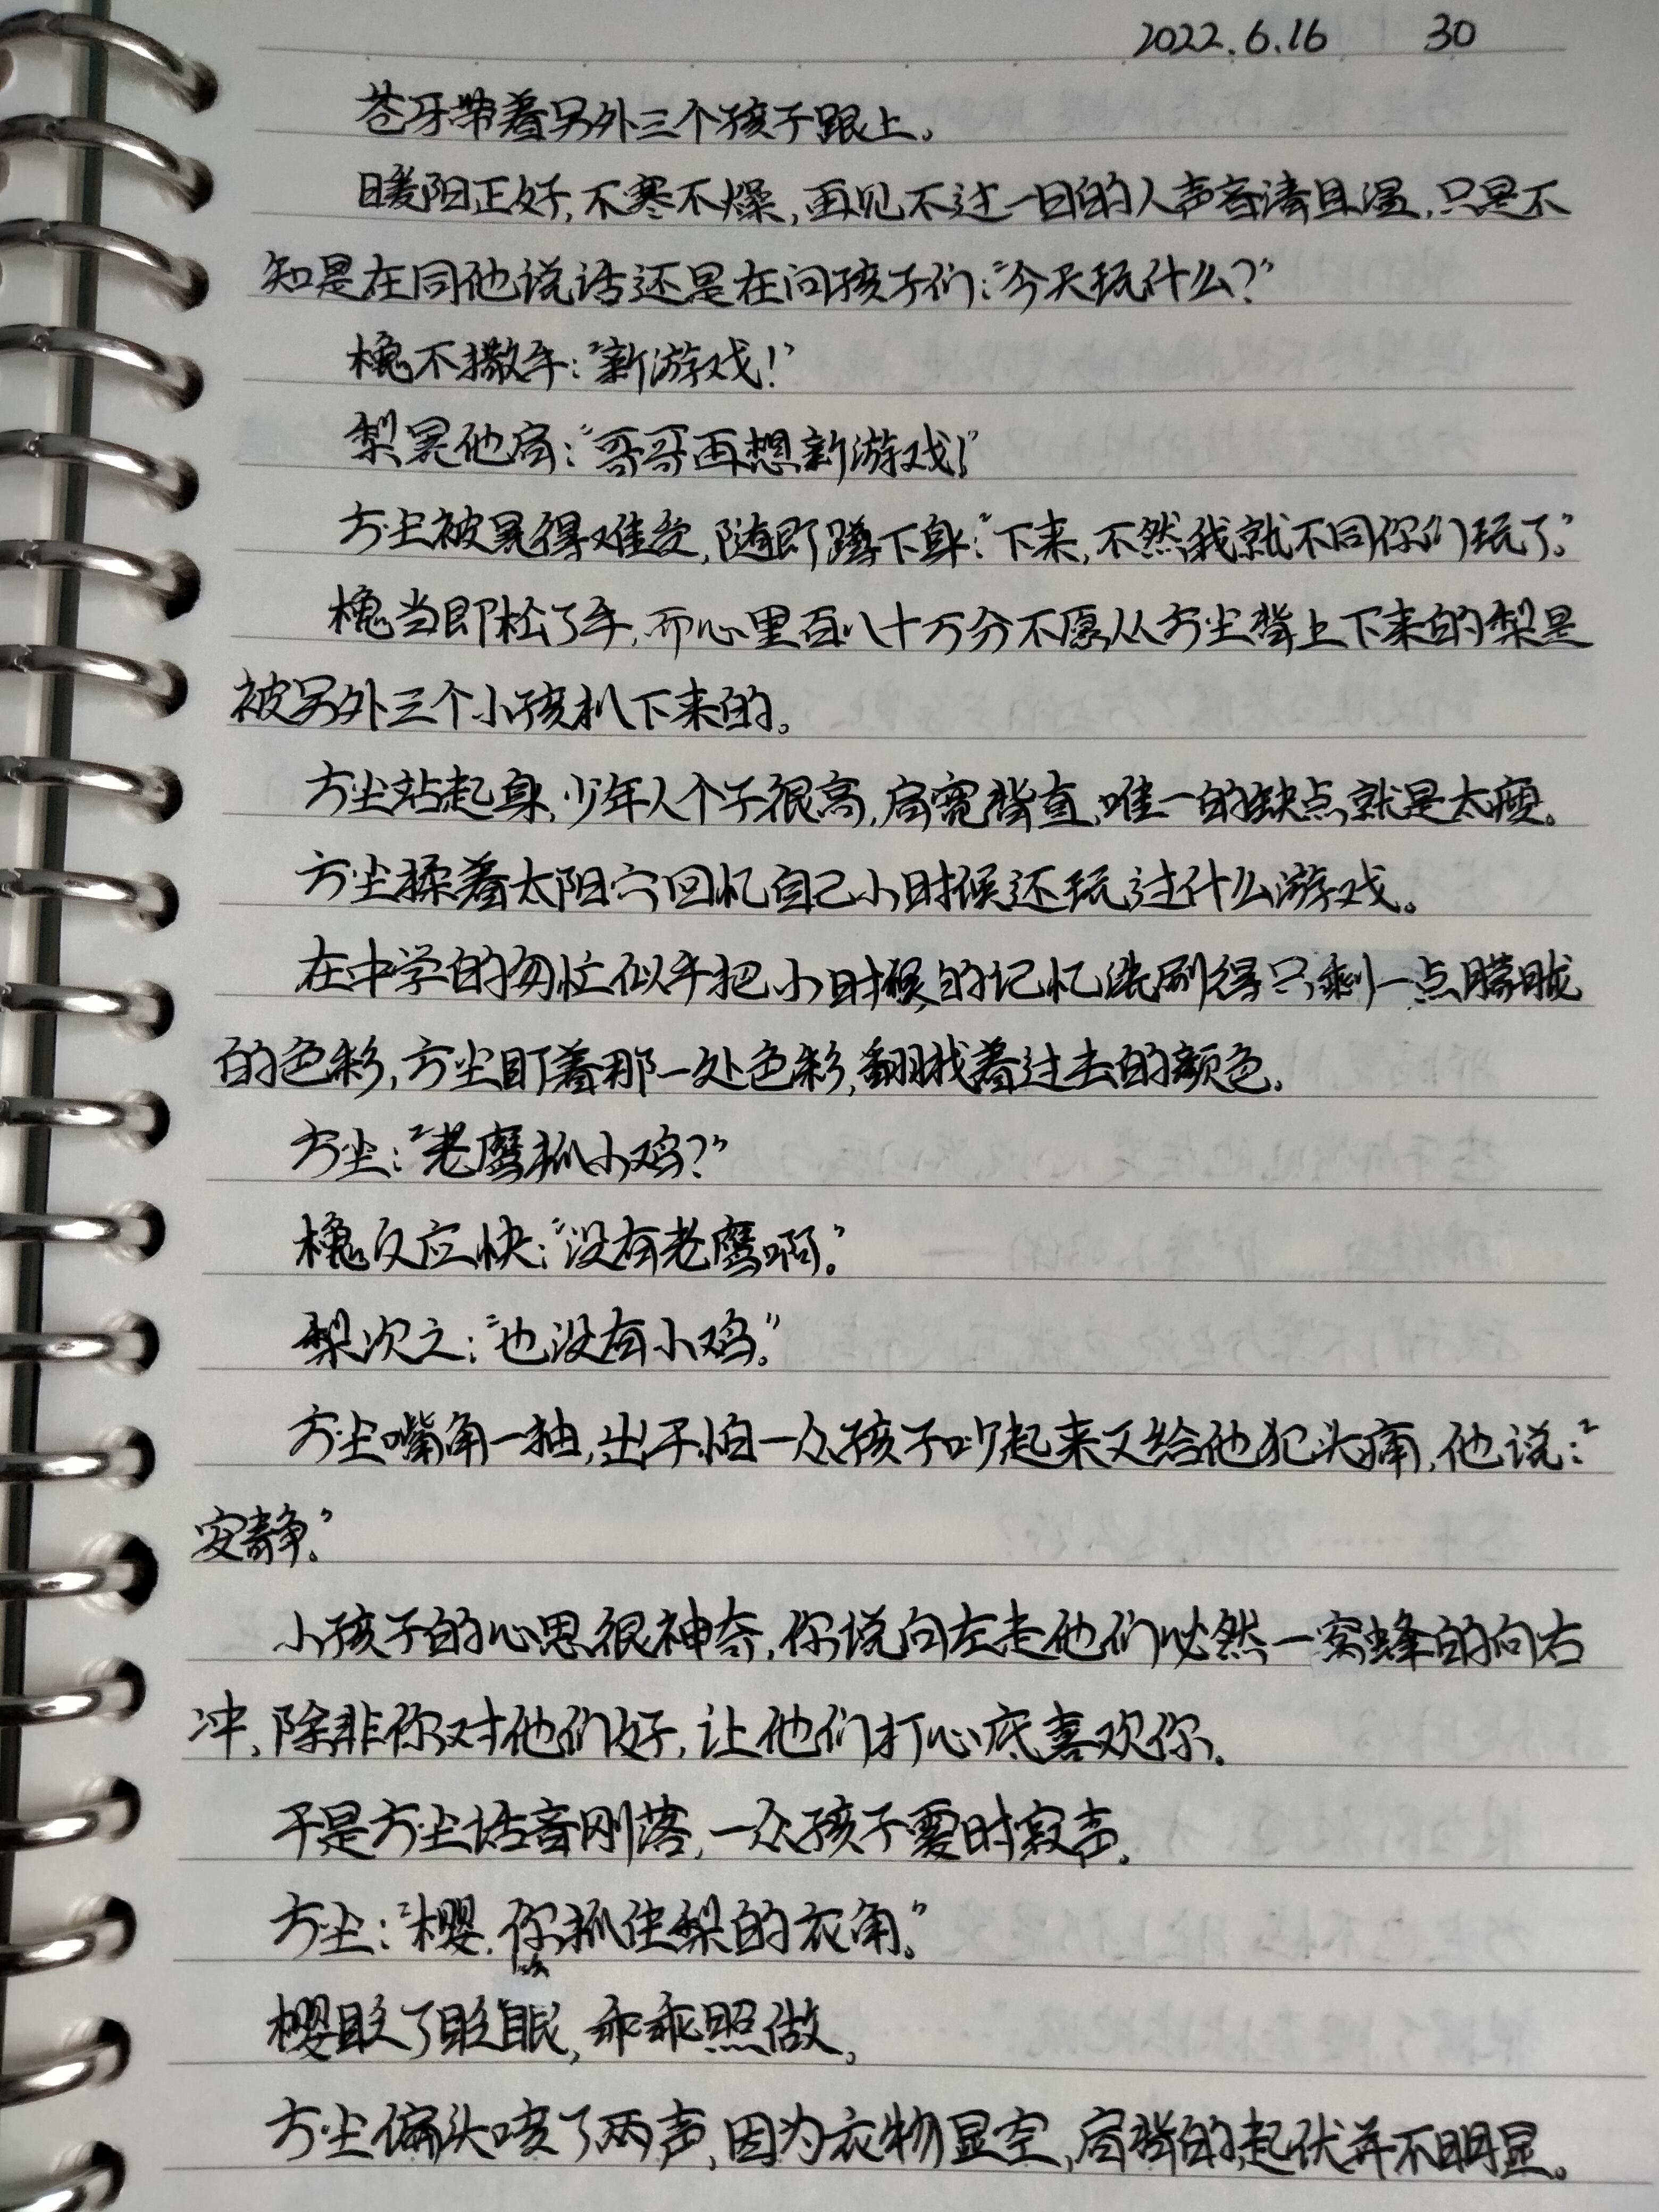 2022.6.16 30
苍牙带着另外三个孩子跟上。
暖阳正好,不寒不燥,再见不过一日的人声音清且温,只是不
知是在同他说话还是在问孩子们:“今天玩什么?”
槐不撒手:“新游戏!”
梨晃他肩:“哥哥再想新游戏!”
方尘被晃得难受,随即蹲下身:“下来,不然我就不同你们玩了。”
槐当即松了手,而心里百八十万分不愿从方尘背上下来的梨是
被另外三个小孩扒下来的。
方尘站起身,少年人个子很高,肩宽背直,唯一的缺点就是太瘦。
方尘揉着太阳穴回忆自己小时候还玩过什么游戏。
在中学的匆忙似乎把小时候的记忆洗刷得只剩一点朦胧
的色彩,方尘盯着那一处色彩,翻找着过去的颜色。
方尘:“老鹰抓小鸡?”
槐反应快:“没有老鹰啊。”
梨次之:“也没有小鸡。”
方尘嘴角一抽,出于怕一众孩子吵起来又给他犯头痛,他说:“
安静。”
小孩子的心思很神奇,你说向左走他们必然一窝蜂的向右
冲,除非你对他们好,让他们打心底喜欢你。
于是方尘话音刚落,一众孩子霎时寂声。
方尘:“樱,你抓住梨的衣角。”
樱眨了眨眼,乖乖照做。
方尘偏头咳了两声,因为衣物显空,肩背的起伏并不明显。